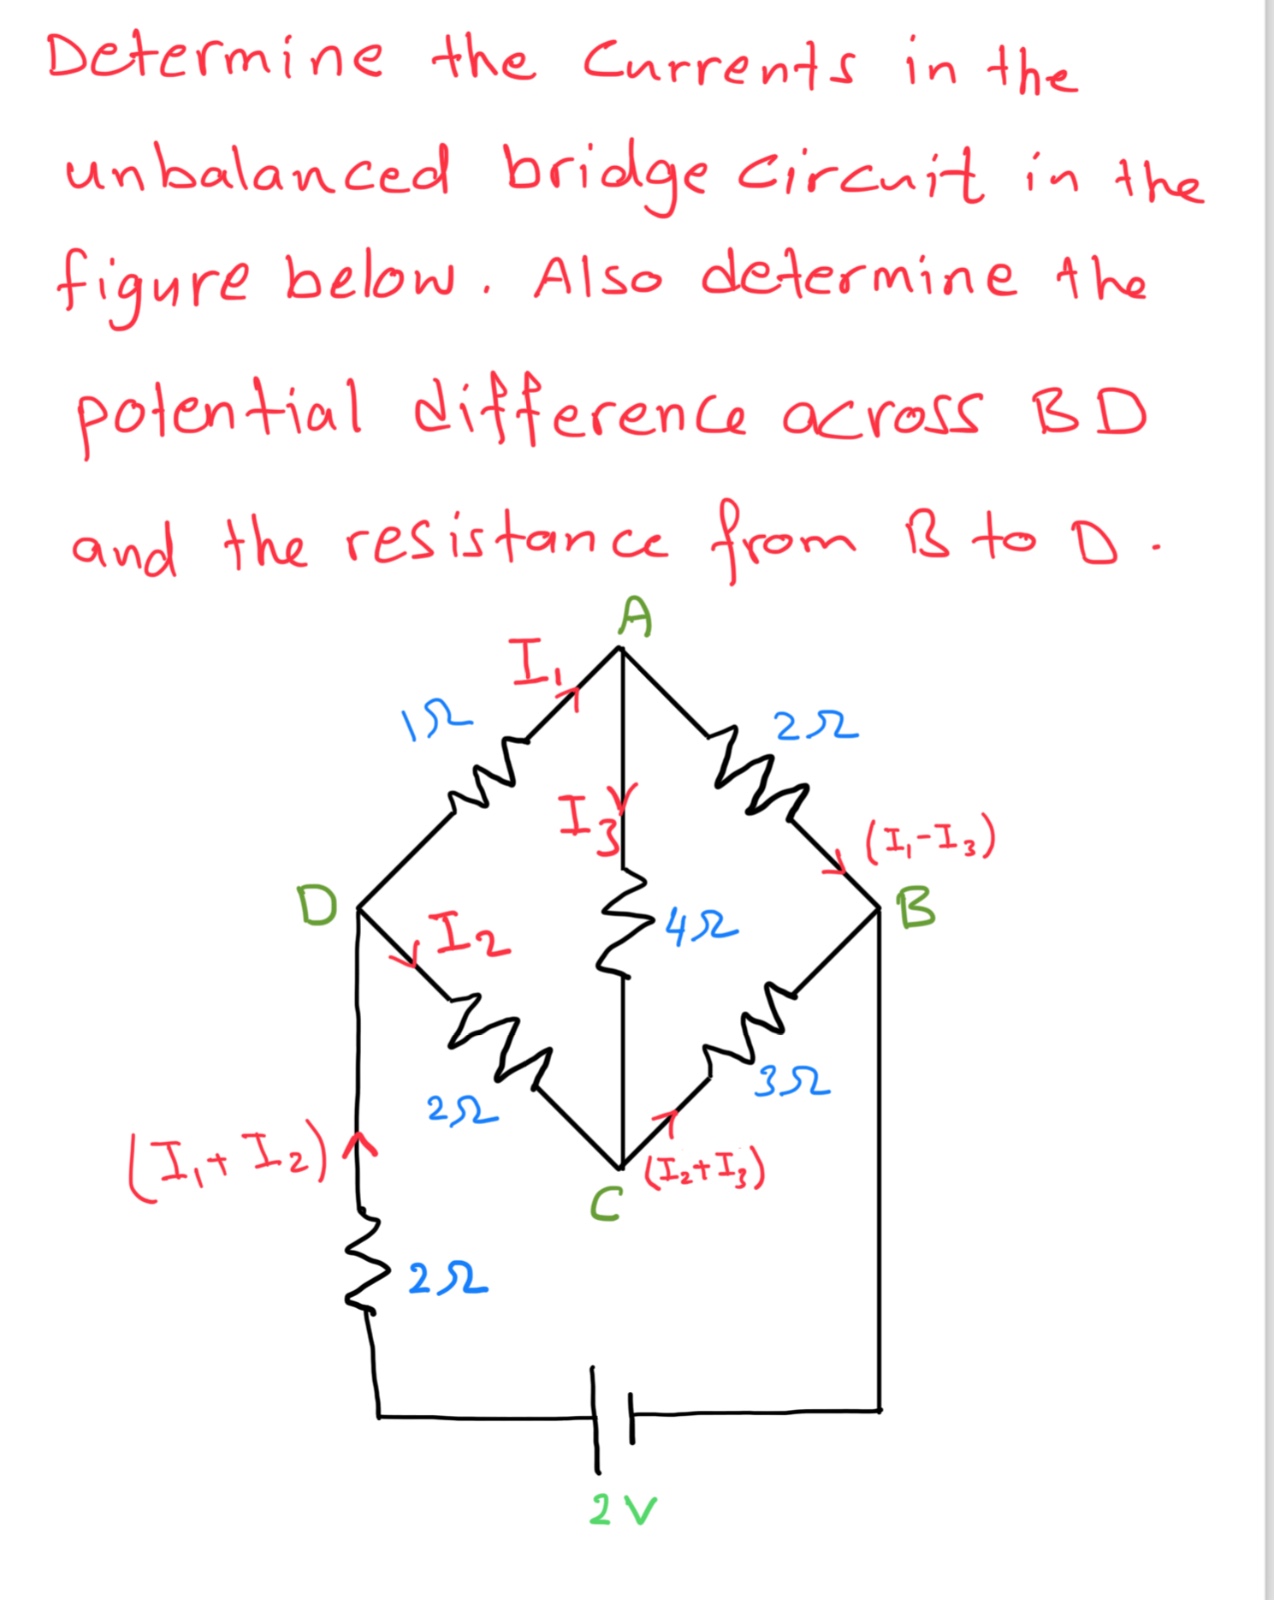 Determine the Currents in the
unbalanced bridge circuit in the
figure below. Also determine the
potential difference across BD
and the resistance from B to D.
A
I₁
1Ω
2Ω
I₃
(I₁-I₃)
D
I₂
4Ω
B
2Ω
3Ω
(I₁+I₂)
(I₂+I₃)
C
2Ω
2V